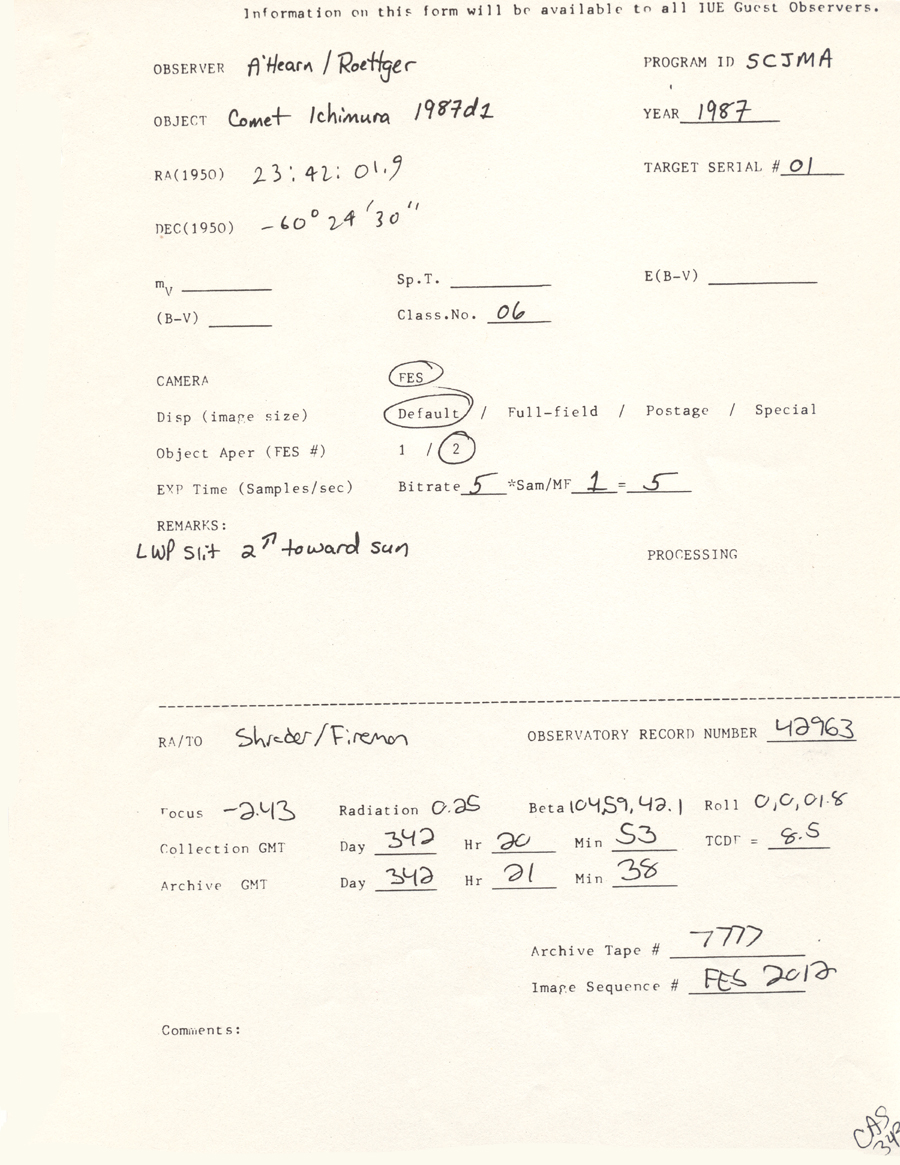 Information on this form will be available to all IUE Guest Observers.
OBSERVER A'Hearn / Roettger PROGRAM ID SCJMA
OBJECT Comet Ichimura 1987d1 YEAR 1987
RA(1950) 23:42:01.9 TARGET SERIAL # 01
DEC(1950) -60° 24' 30"
mV Sp.T. E(B-V)
(B-V) Class.No. 06
CAMERA FES
Disp (image size) Default / Full-field / Postage / Special
Object Aper (FES #) 1 / 2
EXP Time (Samples/sec) Bitrate 5 *Sam/MF 1 = 5
REMARKS:
LWP slit 2" toward sun
PROCESSING
RA/TO Shrader/Fireman OBSERVATORY RECORD NUMBER 42963
Focus -2.43 Radiation 0.25 Beta 104,59,42.1 Roll 0,0,01.8
Collection GMT Day 342 Hr 20 Min 53 TCDF = 8.5
Archive GMT Day 342 Hr 21 Min 38
Archive Tape # 7777
Image Sequence # FES 2012
Comments:
CAS
342